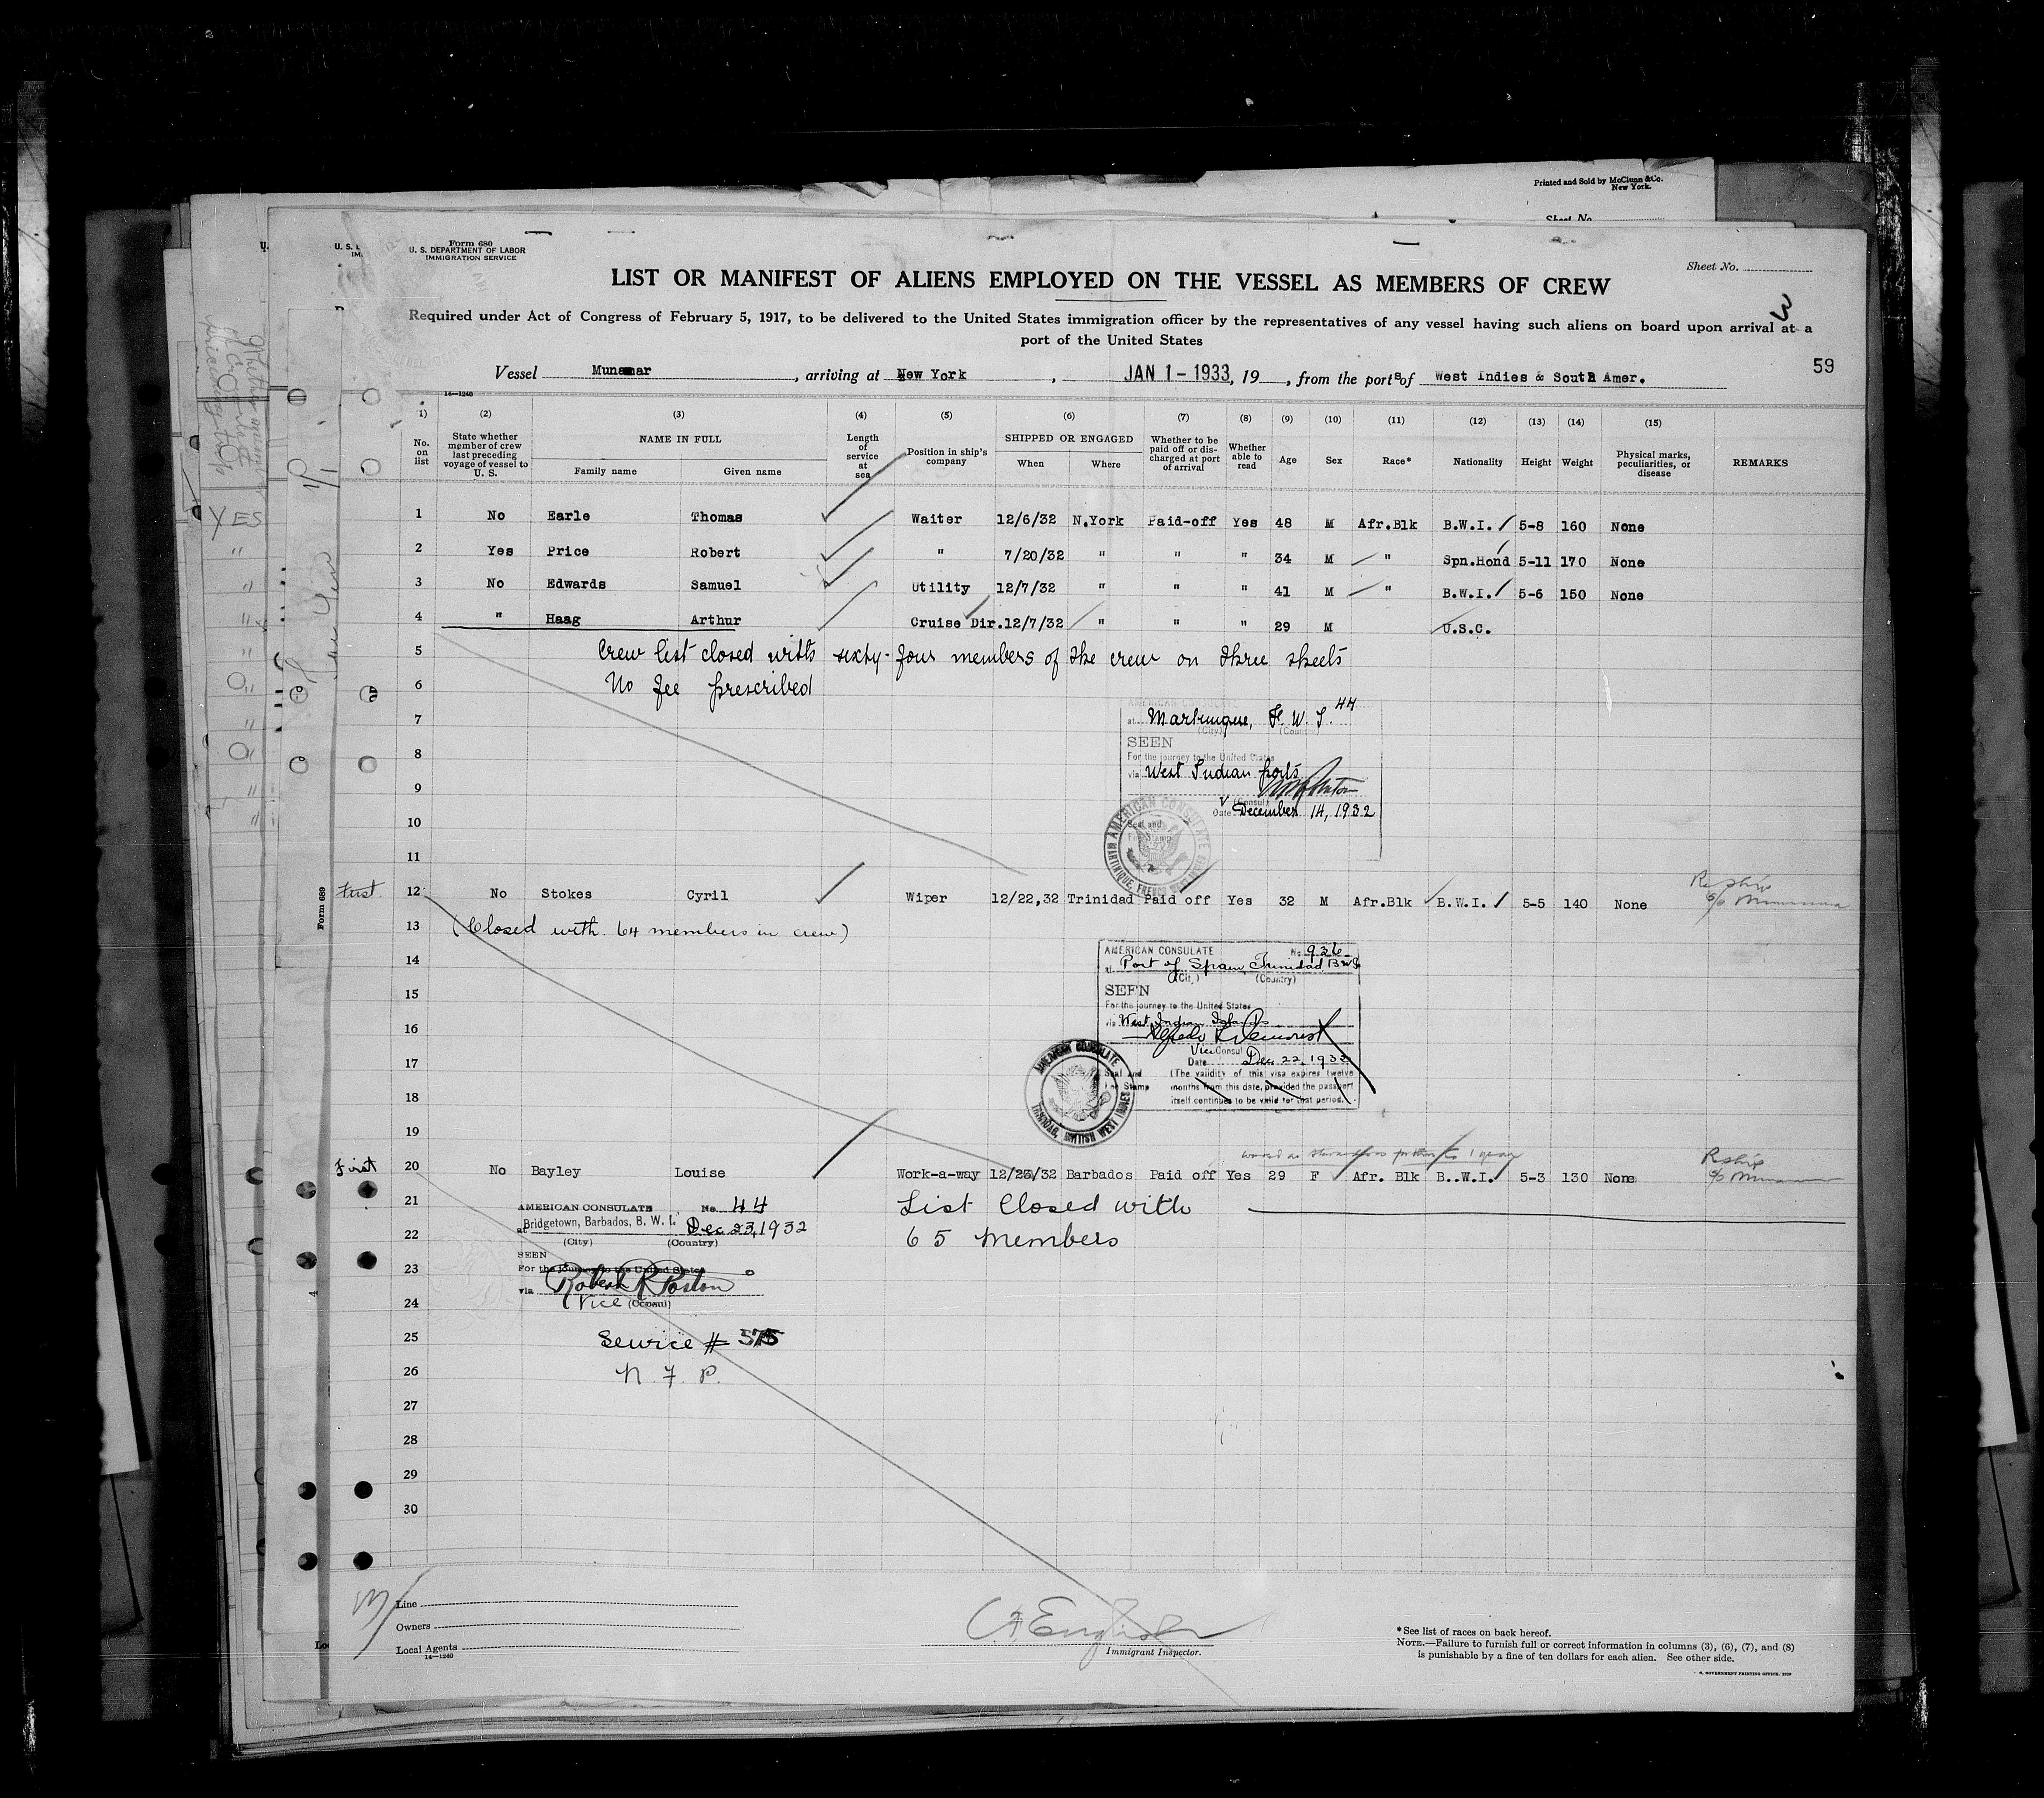 Printed and Sold by McClunn & Co.
New York.
Sheet No.
Form 680
U. S. DEPARTMENT OF LABOR
IMMIGRATION SERVICE
Sheet No.
LIST OR MANIFEST OF ALIENS EMPLOYED ON THE VESSEL AS MEMBERS OF CREW
3
Required under Act of Congress of February 5, 1917, to be delivered to the United States immigration officer by the representatives of any vessel having such aliens on board upon arrival at a
port of the United States
59
Vessel Munamar, arriving at New York, JAN 1 - 1933, 19, from the ports of West Indies & South Amer.
14—1240
(1) (2) (3) (4) (5) (6) (7) (8) (9) (10) (11) (12) (13) (14) (15)
No. on list State whether member of crew last preceding voyage of vessel to U. S. NAME IN FULL Family name Given name Length of service at sea Position in ship's company SHIPPED OR ENGAGED When Where Whether to be paid off or discharged at port of arrival Whether able to read Age Sex Race* Nationality Height Weight Physical marks, peculiarities, or disease REMARKS
YES
1 No Earle Thomas Waiter 12/6/32 N.York Paid-off Yes 48 M Afr.Blk B.W.I. 5-8 160 None
2 Yes Price Robert " 7/20/32 " " " 34 M " Spn.Hond 5-11 170 None
3 No Edwards Samuel Utility 12/7/32 " " " 41 M " B.W.I. 5-6 150 None
4 " Haag Arthur Cruise Dir. 12/7/32 " " " 29 M U.S.C.
5 Crew list closed with sixty-four members of the crew on three sheets
6 No fee prescribed
7
AMERICAN CONSULATE 44
at Martinique, F. W. I.
(City) (Country)
SEEN
8
For the journey to the United States
via West Indian ports
9
V (Consul)
Date December 14, 1932
10
Seal and
Fee Stamp
AMERICAN CONSULATE MARTINIQUE, FRENCH WEST INDIES
11
First 12 No Stokes Cyril Wiper 12/22,32 Trinidad Paid off Yes 32 M Afr.Blk B.W.I. 5-5 140 None Reship
Form 689
13 (Closed with 64 members in crew)
14
AMERICAN CONSULATE No. 936
at Port of Spain, Trinidad B.W.I.
(City) (Country)
15
SEEN
For the journey to the United States
16
via West Indian Islands
17
Vice Consul
Date Dec 22, 1932
Seal and Fee Stamp
(The validity of this visa expires twelve
months from this date, provided the passport
18
itself continues to be valid for that period.)
AMERICAN CONSULATE TRINIDAD, BRITISH WEST INDIES
19
First 20 No Bayley Louise Work-a-way 12/23/32 Barbados Paid off Yes 29 F Afr. Blk B..W.I. 5-3 130 None Reship
21 AMERICAN CONSULATE No. 44 List Closed with
at Bridgetown, Barbados, B. W. I. Dec 23, 1932
22 (City) (Country) 65 members
SEEN
23 For the journey to the United States
via Robert R Poston
24 Vice (Consul)
25 Service # 575
26 N. F. P.
27
28
29
30
Line
Owners
Local Agents
14—1240
Immigrant Inspector.
*See list of races on back hereof.
NOTE.—Failure to furnish full or correct information in columns (3), (6), (7), and (8)
is punishable by a fine of ten dollars for each alien. See other side.